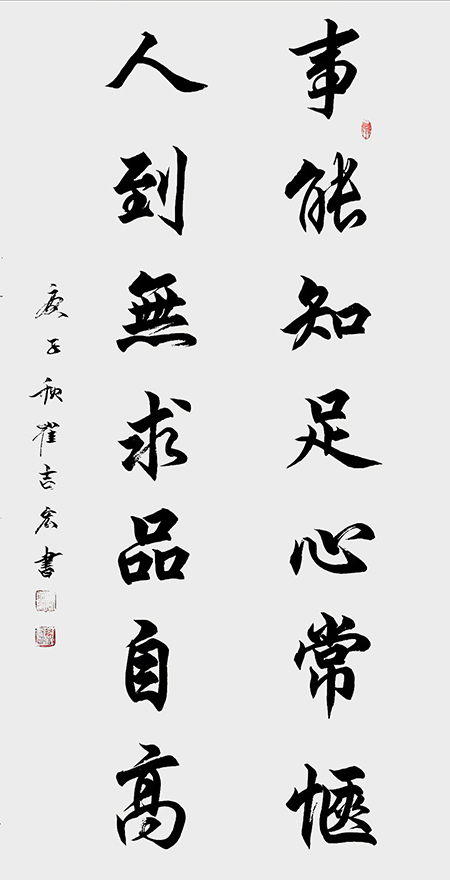 事能知足心常惬
人到無求品自高
庚子秋崔吉宏書